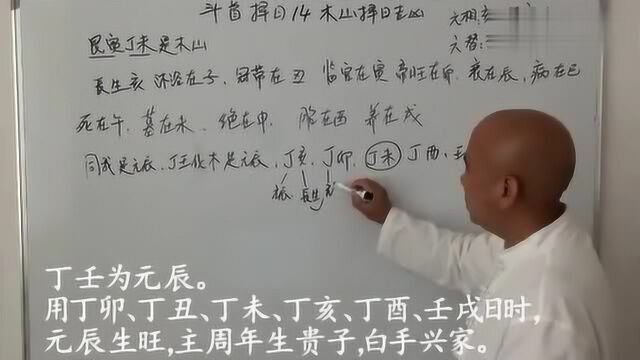 斗首择日14 木山择日吉凶
元相:亥
艮寅丁未是木山
長生亥 沐浴在子、冠带在丑 临官在寅 帝旺在卯、衰在辰,病在巳
死在午、墓在未、绝在申、胎在酉 养在戌
同我是元辰、丁壬化木是元辰、丁亥、丁卯、丁未、丁酉、壬
元辰 長生
丁壬为元辰。
用丁卯、丁丑、丁未、丁亥、丁酉、壬戌日时,
元辰生旺,主周年生贵子,白手兴家。